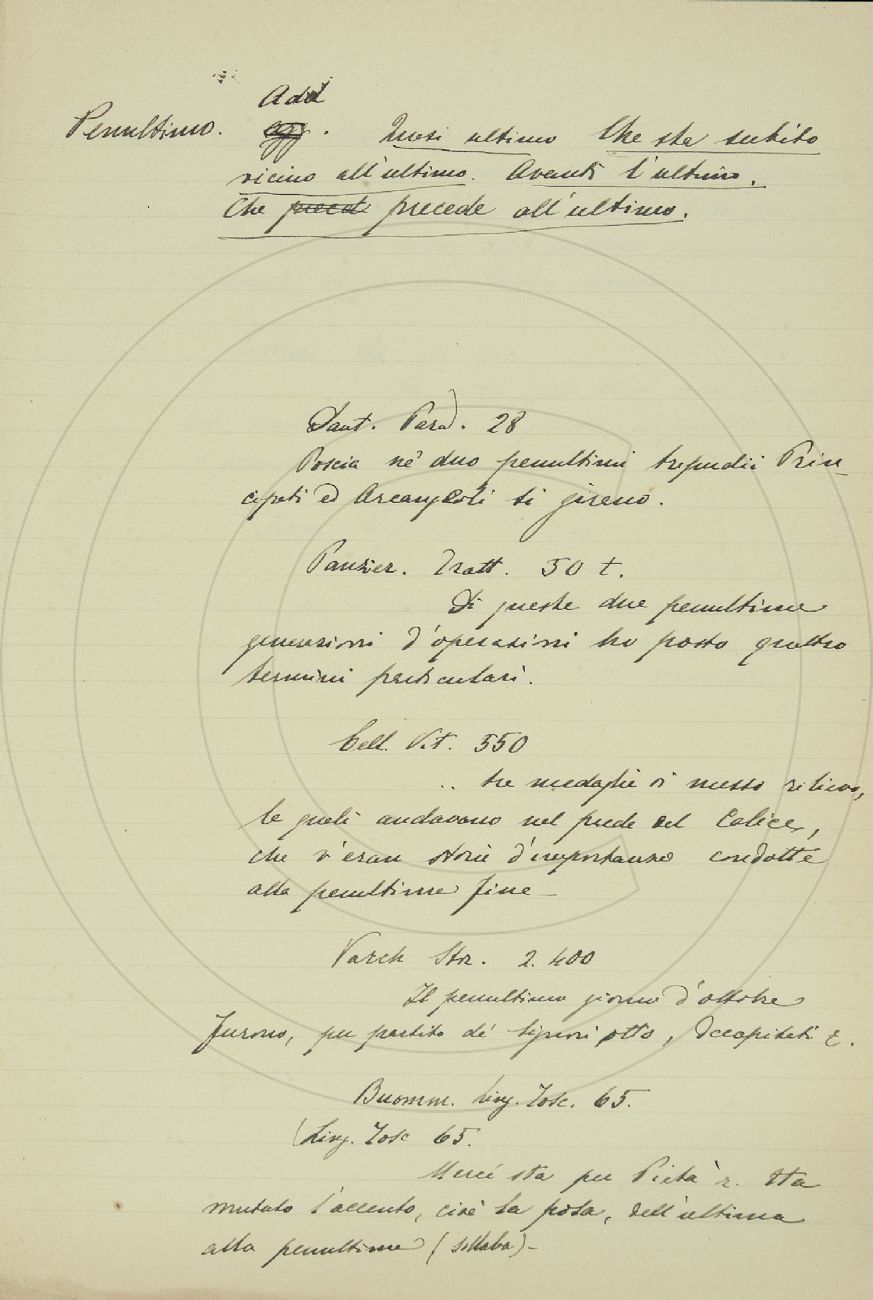 Add
Penultimo. agg. Quasi ultimo Che sta subito
vicino all'ultimo. Avanti l'ultimo.
Che preced precede all'ultimo.
Dant. Parad. 28
Poscia ne' duo penultimi tripudii Prin-
cipati ed Arcangeli si girano.
Panzier. Tratt. 50 t.
Di queste due penultime
generazioni d'operazioni ho posto quattro
termini particulari.
Cell. Vit. 550
.. tre medaglie di mezzo rilievo,
le quali andavano nel piede del Calice,
che v'eran storie d'importanza condotte
alla penultima fine -
Varch Stor. 2. 400
Il penultimo giorno d'ottobre
furono, per partito de' signori otto, decapitati
Buomm. Ling. Tosc. 65.
(Ling. Tosc 65.
Mercé sta per Pietà Sta
mutato l'accento, cioè la posa, dell'ultima
alla penultima (sillaba) -